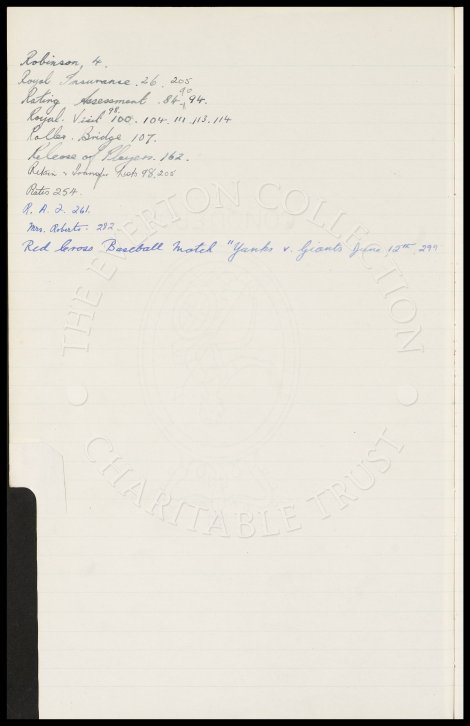 Robinson, 4.
Royal Insurance. 26. 205
Rating Assessment. 84, 90, 94.
Royal Visit 98. 100. 104. 111. 113. 114
Roller Bridge 107.
Release of Players. 162.
Retain & Transfer Lists 98, 205
Rates 254.
R. A. F. 261.
Mrs. Roberts. 282
Red Cross Baseball Match "Yanks v. Giants June 12th, 299
THE EVERTON COLLECTION
CHARITABLE TRUST